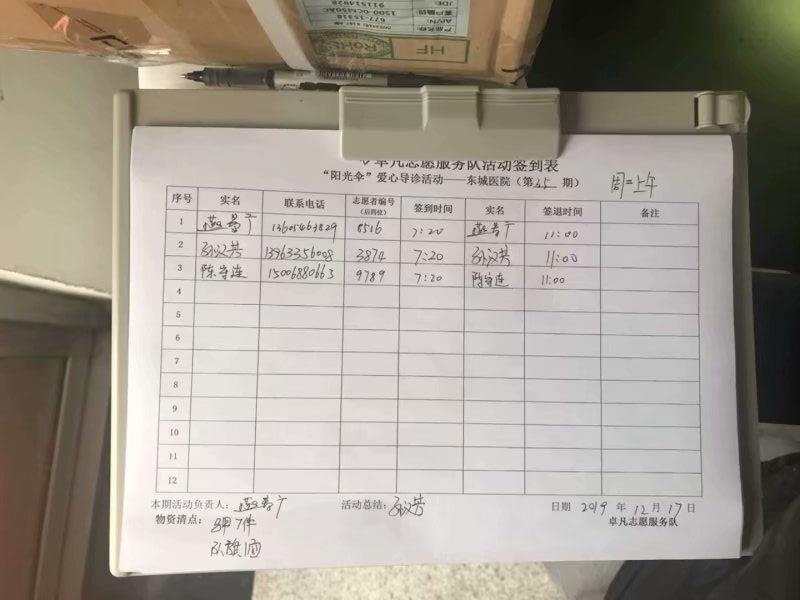 卓凡志愿服务队活动签到表
“阳光伞”爱心导诊活动——东城医院（第 45 期） 周二上午
序号 实名 联系电话 志愿者编号（后四位） 签到时间 实名 签退时间 备注
1 13605463829 8516 7:20 11:00
2 孙汉芳 13963356008 3874 7:20 孙汉芳 11:00
3 陈守连 15006880663 9789 7:20 陈守连 11:00
4
5
6
7
8
9
10
11
12
本期活动负责人： 活动总结： 孙汉芳 日期 2019 年 12 月 17 日
物资清点： 7件 卓凡志愿服务队
队旗1面
HF
RoHS
677-15318
1500-0CM450AC
911514928
产品名称:
AP/N:
客户编码:
JDE: